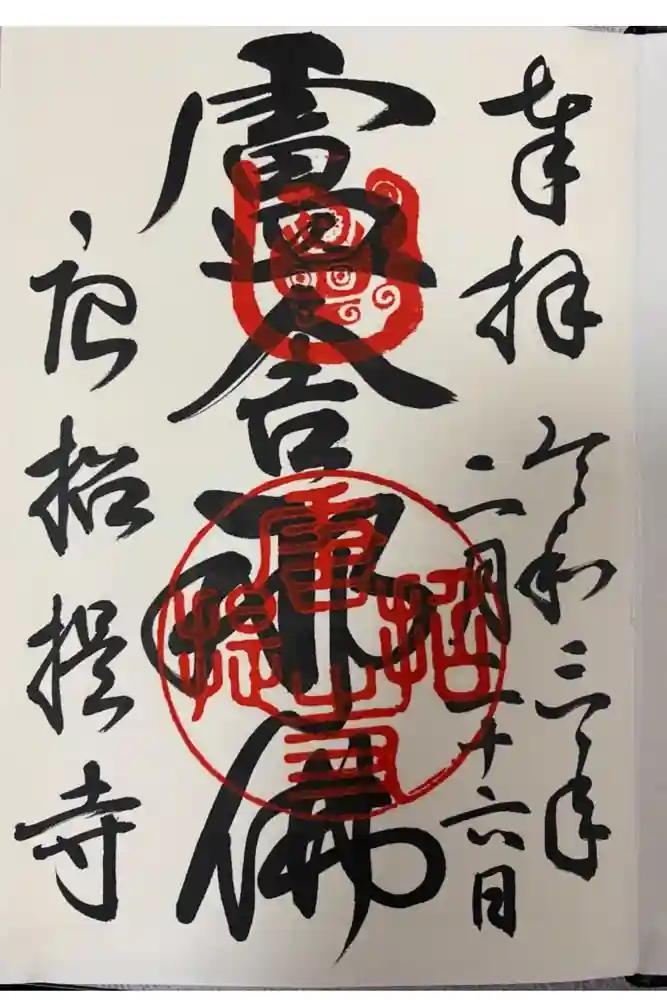 奉拝
令和三年
二月二十六日
盧舎那佛
唐招提寺
唐招提寺